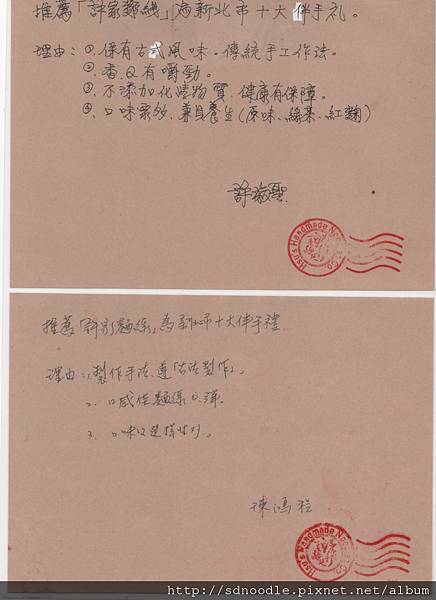 推薦「許家麵線」為新北市十大伴手礼。
理由：①保有古式風味。傳統手工作法。
②香Q有嚼勁。
③不添加化學物質，健康有保障。
④口味眾多，兼具養生(原味、綠茶、紅麴)
Hsu's Handmade
推薦「許家麵線」為新北市十大伴手禮
理由：1.製作手法，遵「古法製作」。
2.口感佳麵條Q彈。
3.口味選擇
陳鴻程
Hsu's Handmade
http://sdnoodle.pixnet.net/album